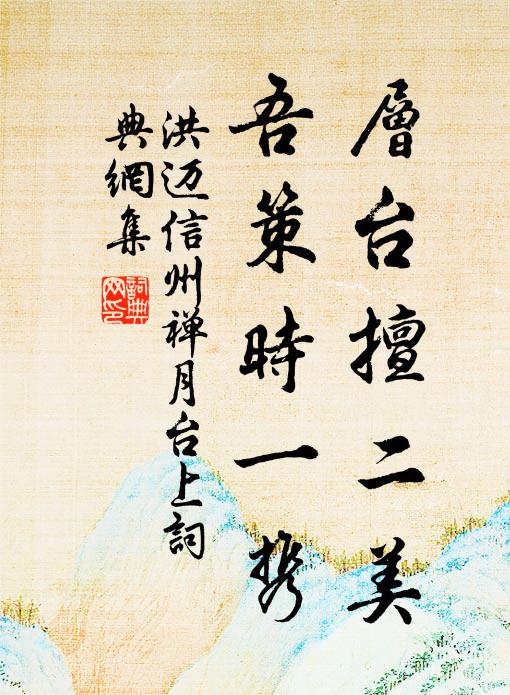 層台擅二美
吾策時一携
洪迈信州禅月台上詞
典網集
詞典
网印